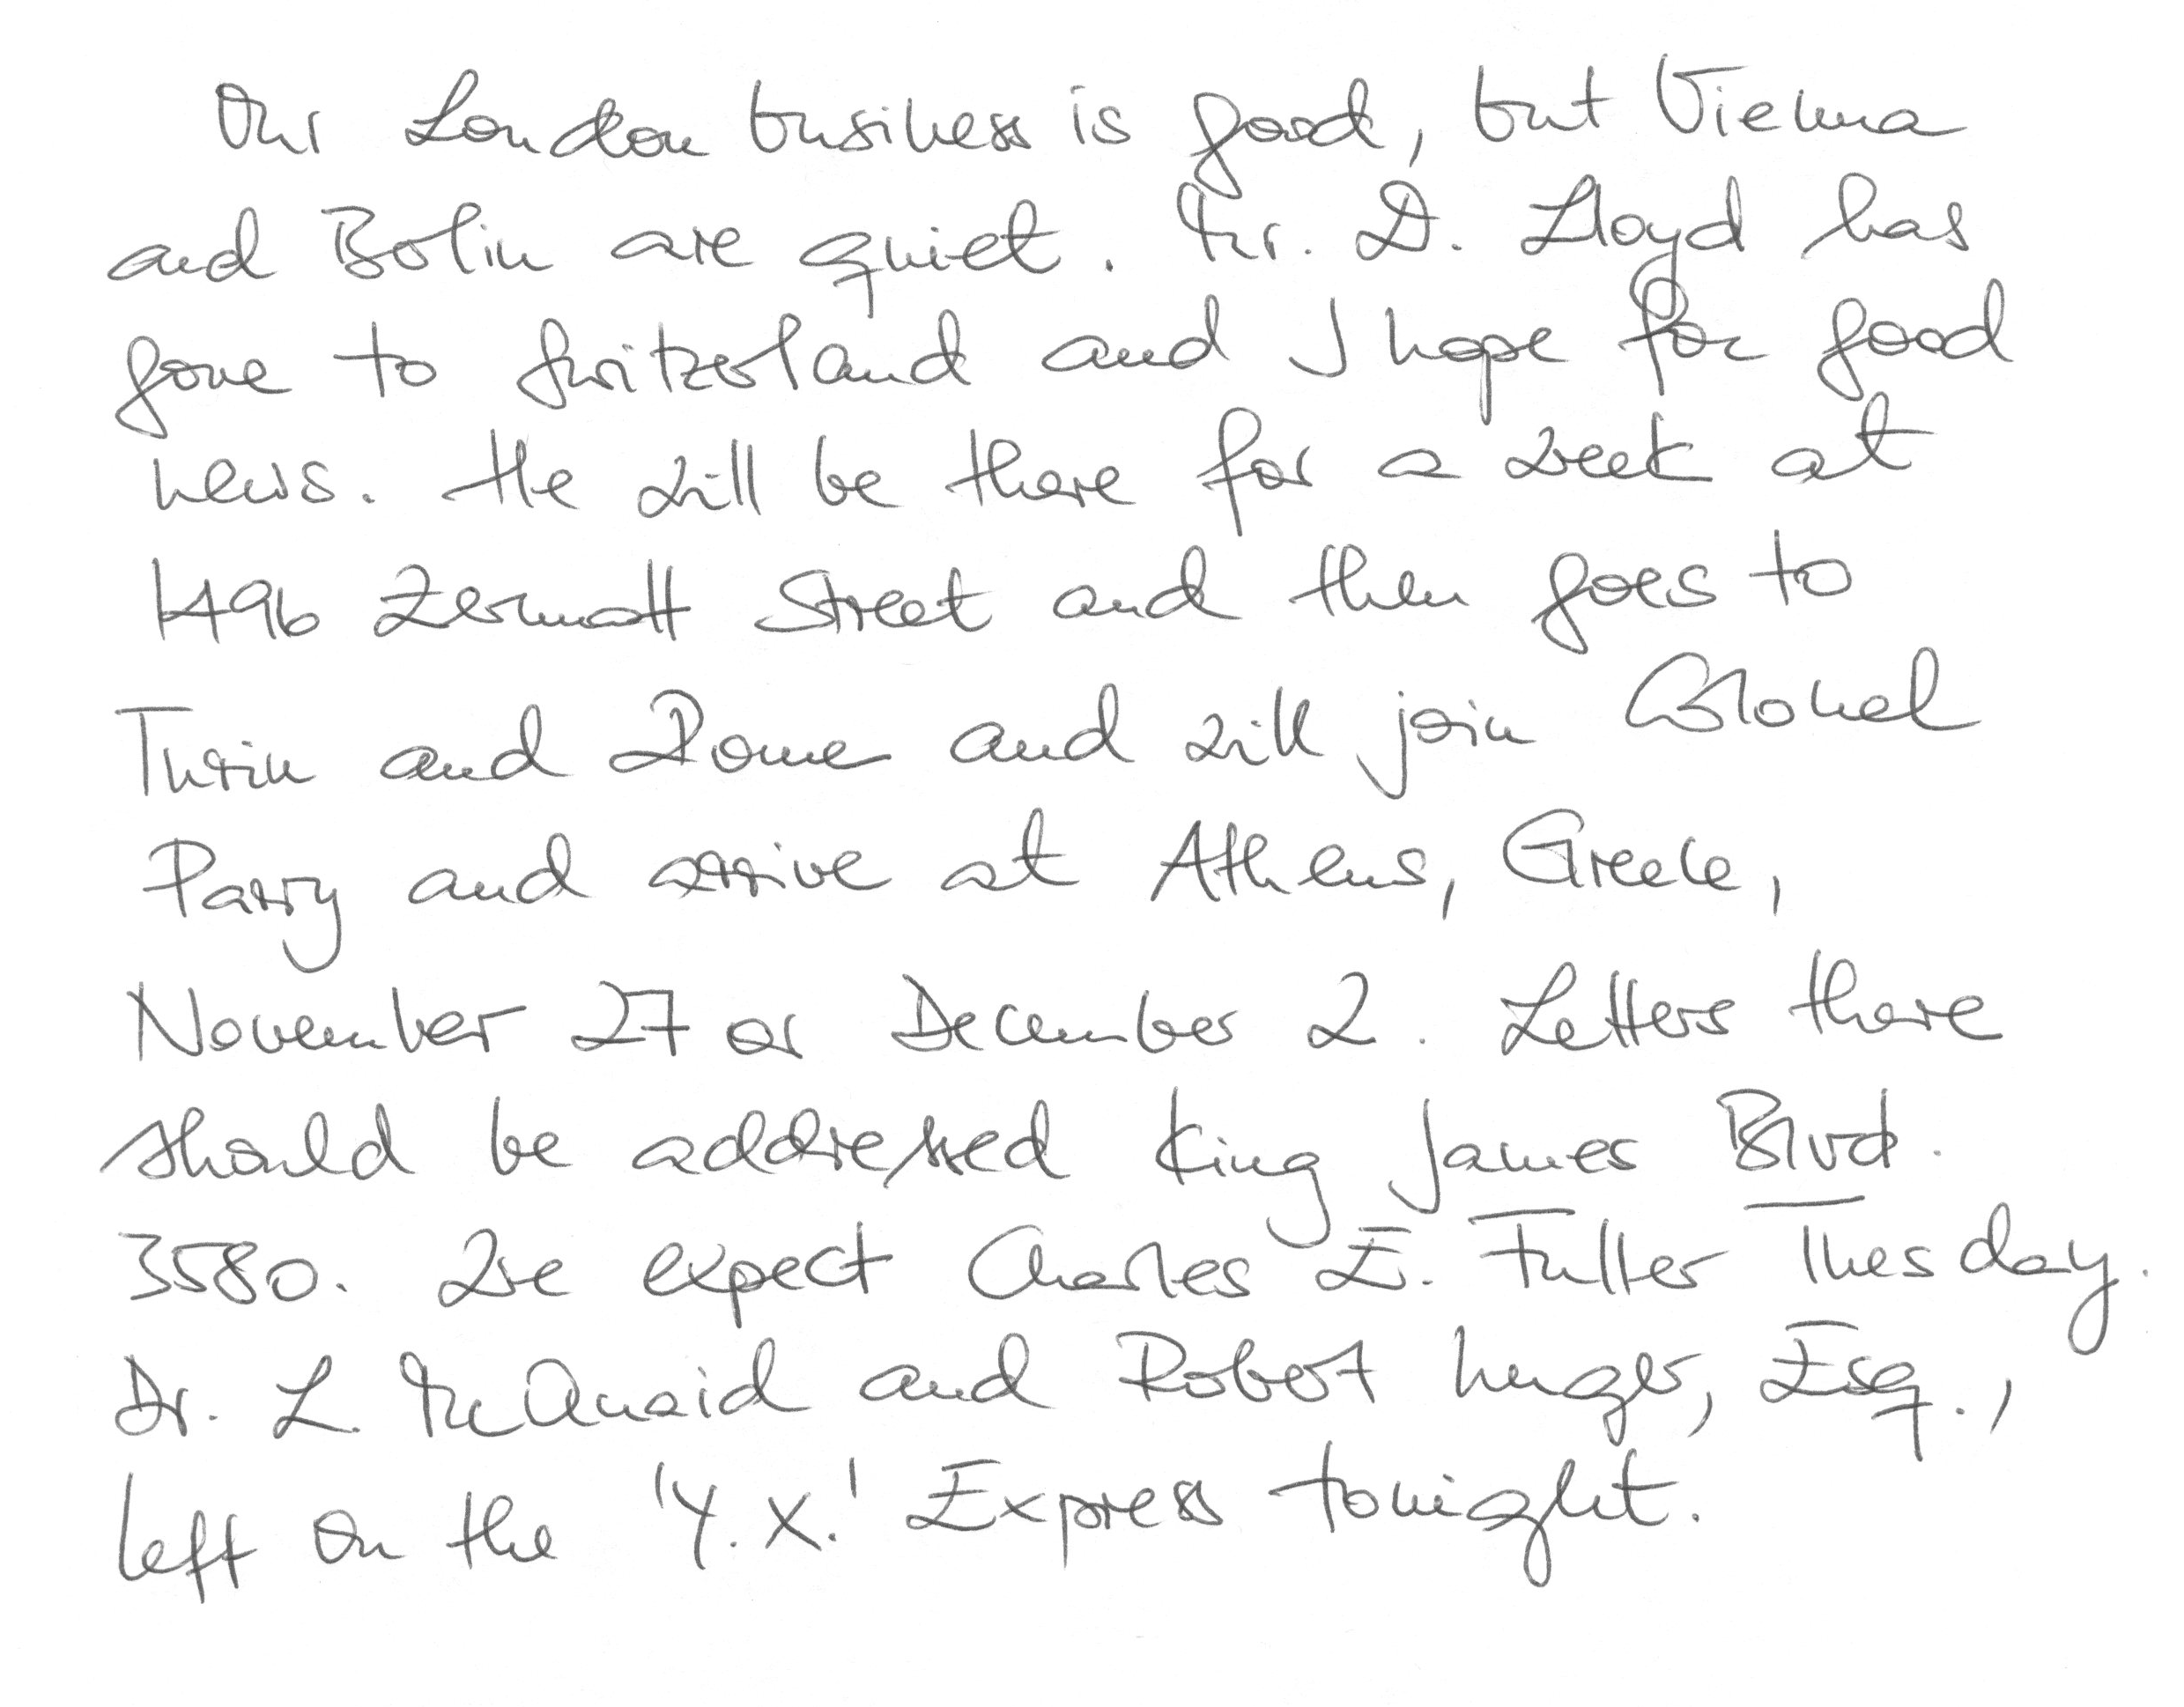 Our London business is good, but Vienna
and Berlin are quiet. Mr. D. Lloyd has
gone to Switzerland and I hope for good
news. He will be there for a week at
1496 Zermatt Street and then goes to
Turin and Rome and will join Colonel
Parry and arrive at Athens, Greece,
November 27 or December 2. Letters there
should be addressed King James Blvd.
3580. We expect Charles E. Fuller Tuesday.
Dr. L. McQuaid and Robert Unger, Esq.,
left on the 'Y.X.' Express tonight.